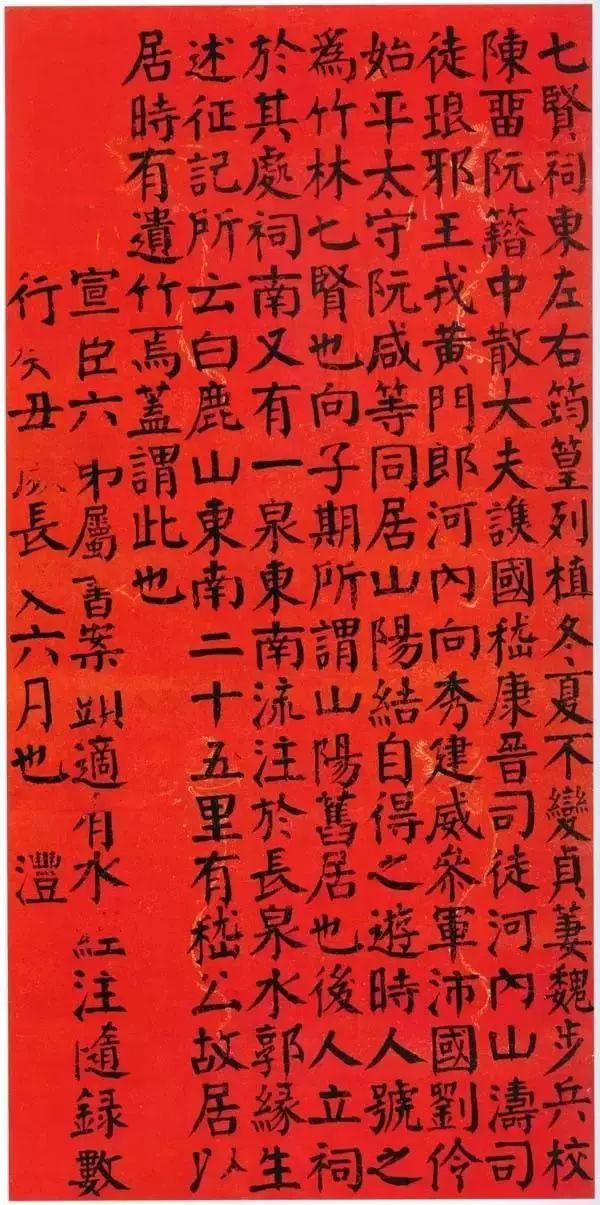 七賢祠東左右筠篁列植冬夏不變貞萋魏步兵校
陳畱阮籍中散大夫譙國嵇康晉司徒河內山濤司
徒琅邪王戎黃門郎河內向秀建威參軍沛國劉伶
始平太守阮咸等同居山陽結自得之遊時人號之
為竹林七賢也向子期所謂山陽舊居也後人立祠
於其處祠南又有一泉東南流注於長泉水郭緣生
述征記所云白鹿山東南二十五里有嵇公故居以
居時有遺竹焉蓋謂此也
宣臣六弟屬書案頭適有水經注隨錄數
行癸丑長入六月也 澧